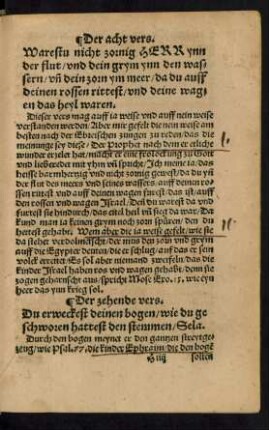 ¶ Der acht vers.
Warestu nicht zornig HERR ynn
der flut/ vnd dein grym ynn den was
sern/ vñ dein zorn ym meer/ da du auff
deinen rossen rittest/ vnd deine wag/
en das heyl waren.
Dieser vers mag auff ia weise vnd auff nein weise
verstanden werden/ Aber mir gefelt die nein weise am
besten nach der Ebreischen zungen zu reden/ das die
meinunge sey diese/ Der Prophet nach dem er etliche
wunder erzelet hat/ machet er eine
vnd liebkoset mit yhm vñ spricht/ Ich meine ia das
heisse barmhertzig vnd nicht zornig gewest/ da du yñ
der flut des meers vnd ynn deines wassers auff deinen ros
sen rittest vnd auff deinen wagen furest/ das ist/ auff
den rossen vnd wagen Israel/ Den du warest da vnd
furtest sie hindurch das eitel heil vñ sieg da war. Der
kund man ia keinen grym noch zorn spüren/ den du
hertest gehabt. Wem aber die ia weise gefelt/ wie sie
da stehet verdolmetscht/ der mus den zorn vnd grym
auff die Egypter deuten/ die er schlug/ auff das er sein
volck errettet/ Es sol aber niemand zweifeln/ das die
kinder Israel haben ros vnd wagen gehabt/ denn sie
zogen geharnscht aus/ spricht Mose Exo. 13. wie eyn
heer das ynn krieg sol.
¶ Der zehende vers.
Du erweckest deinen bogen/ wie du ge
schworen hattest den stemmen/ Sela.
Durch den bogen meynet er den gantzen streytge/
zeug/ wie Psal. 77. die kinder Ephraim/ die den bogē
sollen